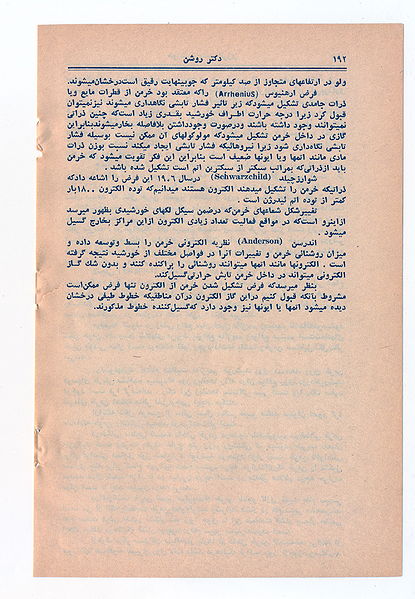 ۱۹۲
دکتر روشن
ولو در ارتفاعهای متجاوز از صد کیلومتر که جوبینهایت رقیق است‌درخشان‌میشوند.
فرض ارهنیوس (Arrhenius) راکه معتقد بود خرمن از قطرات مایع ویا
ذرات جامدی تشکیل میشودکه زیر تاثیر فشار تابشی نگاهداری میشوند نیزنمیتوان
قبول کرد زیرا درجه حرارت اطراف خورشید بقدری زیاد است‌که چنین ذراتی
نمیتوانند وجود داشته باشند ودرصورت وجودداشتن بلافاصله بخارمیشوندبنابراین
گازی در داخل خرمن تشکیل میشودکه مولوکولهای آن ممکن نیست بوسیله فشار
تابشی نگاهداری شود زیرا نیروهائیکه فشار تابشی ایجاد میکند نسبت بوزن ذرات
مادی مانند اتمها یا ایونها ضعیف است بنابراین این فکر تقویت میشود که خرمن
باید ازذراتی‌که بمراتب سبکتر از سبکترین اتم است تشکیل شده باشد.
شوارزچیلد (Schwarzchild) درسال ۱۹۰۶ این فرض را اشاعه دادکه
ذراتیکه خرمن را تشکیل میدهند الکترون هستند میدانیم‌که توده الکترون ۱۸۰۰بار
کمتر از توده اتم ئیدرژن است.
تغییرشکل شماعهای خرمن‌که درضمن سیکل لکهای خورشیدی بظهور میرسد
ازاینرو است‌که در مواقع فعالیت تعداد زیادی الکترون ازاین مراکز بخارج گسیل
میشود.
اندرسن (Anderson) نظریه الکترونی خرمن را بسط وتوسعه داده و
میزان روشنائی خرمن و تغییرات آنرا در فواصل مختلف از خورشید نتیجه گرفته
است. الکترونها مانند اتمها میتوانند روشنائی را پراکنده کنند و بدون شک گاز
الکترونی میتواند در داخل خرمن تابش حرارتی‌گسیل‌کند.
بنظر میرسدکه فرض تشکیل شدن خرمن از الکترون تنها فرض ممکن‌است
مشروط بآنکه قبول کنیم دراین گاز الکترون درآن مناطقیکه خطوط طیفی درخشان
دیده میشود اتمها یا ایونها نیز وجود دارد که‌گسیل‌کننده خطوط مذکورند.